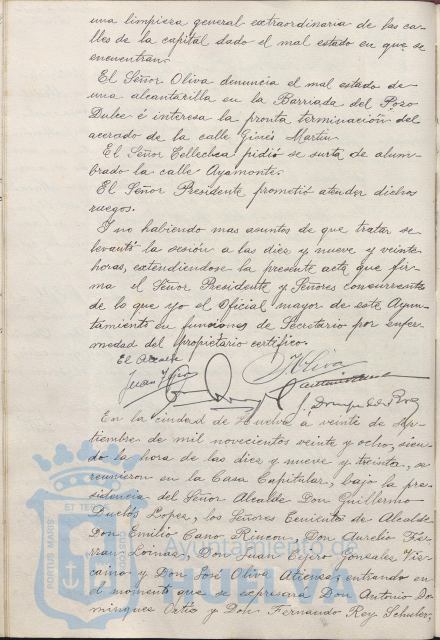 una limpieza general extraordinaria de las ca-
lles de la capital dado el mal estado en que se
encuentran.
El Señor Oliva denuncia el mal estado de
una alcantarilla en la Barriada del Pozo
Dulce é interesa la pronta terminación del
acerado de la calle Ginés Martin.
El Señor Tellechea pidió se surta de alum-
brado la calle Ayamonte.
El Señor Presidente prometió atender dichos
ruegos.
Y no habiendo mas asuntos de que tratar se
levantó la sesión a las diez y nueve y veinte
horas, extendiendose la presente acta que fir-
ma el Señor Presidente y Señores concurrentes
de lo que yo el Oficial mayor de este Ayun-
tamiento en funciones de Secretario por enfer-
medad del propietario certifico.
El Alcalde
J. Oliva
En la ciudad de Huelva a veinte de sep-
tiembre de mil novecientos veinte y ocho, sien-
do la hora de las diez y nueve y treinta, se
reunieron en la Casa Capitular, bajo la pre-
sidencia del Señor Alcalde Don Guillermo
Duclós Lopez, los Señores Tenientes de Alcalde
Don Emilio Cano Rincon, Don Aurelio
Don Juan Tejero Gonzalez Viz-
caino y Don José Oliva Atienza; entrando en
el momento que se expresara Don Antonio Do-
minguez Ortiz y Don Fernando Rey
PORTUS MARIS
ET TER
CUSTODIA
Ayuntamiento de
HUELVA